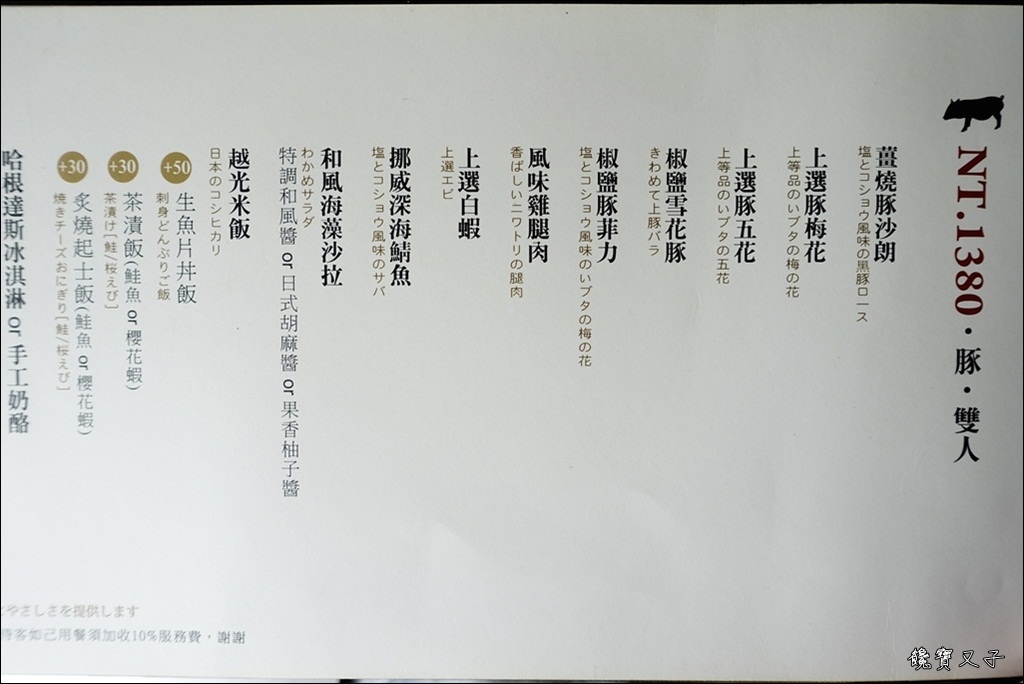 NT.1380・豚・雙人
薑燒豚沙朗
塩とコショウ風味の黑豚ロース
上選豚梅花
上等品のいブタの梅の花
上選豚五花
上等品のいブタの五花
椒鹽雪花豚
きわめて上豚バラ
椒鹽豚菲力
塩とコショウ風味のいブタの梅の花
風味雞腿肉
香ばしいニワトリの腿肉
上選白蝦
上選エビ
挪威深海鯖魚
塩とコショウ風味のサバ
和風海藻沙拉
わかめサラダ
特調和風醬 or 日式胡麻醬 or 果香柚子醬
越光米飯
日本のコシヒカリ
+50 生魚片丼飯
刺身どんぶりご飯
+30 茶漬飯(鮭魚 or 櫻花蝦)
茶漬け[鮭/桜えび]
+30 炙燒起士飯(鮭魚 or 櫻花蝦)
焼きチーズおにぎり[鮭/桜えび]
哈根達斯冰淇淋 or 手工奶酪
とやさしさを提供します
待客如己用餐須加收10%服務費，謝謝
饞寶又子